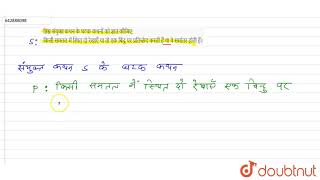 642858098
निम्न संयुक्त कथन के घटक कथनों को ज्ञात कीजिए
S: किसी समतल में स्थित दो रेखाएँ या तो एक बिंदु पर प्रतिच्छेद करती हैं या वे समांतर होती हैं।
संयुक्त कथन S के घटक कथन
P : किसी समतल में स्थित दो रेखाएँ एक बिन्दु पर
doubtnut